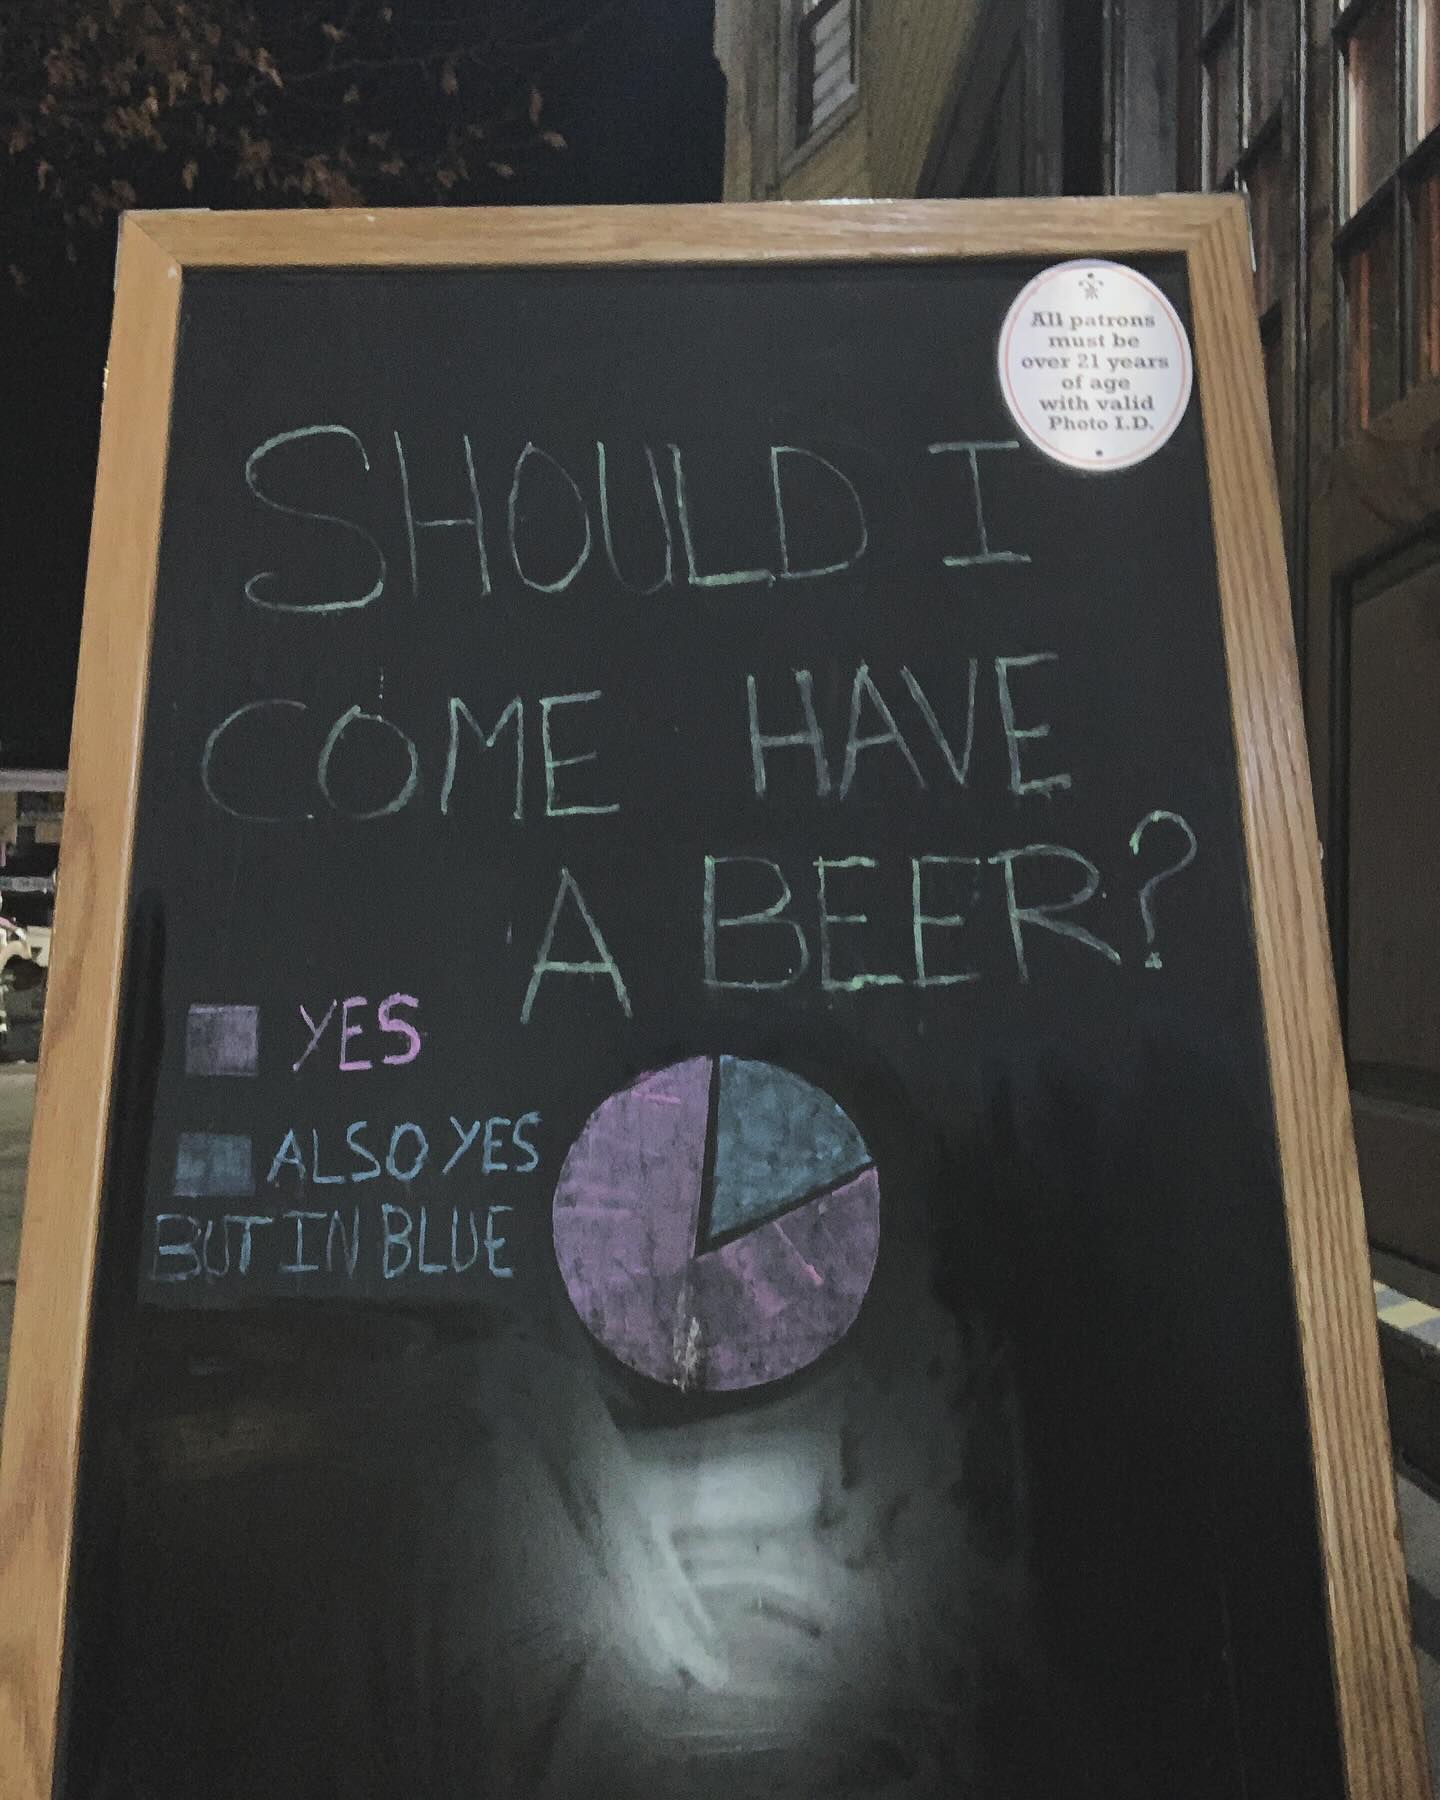 All patrons
must be
over 21 years
of age
with valid
Photo I.D.
SHOULD I
COME HAVE
A BEER?
YES
ALSO YES
BUT IN BLUE